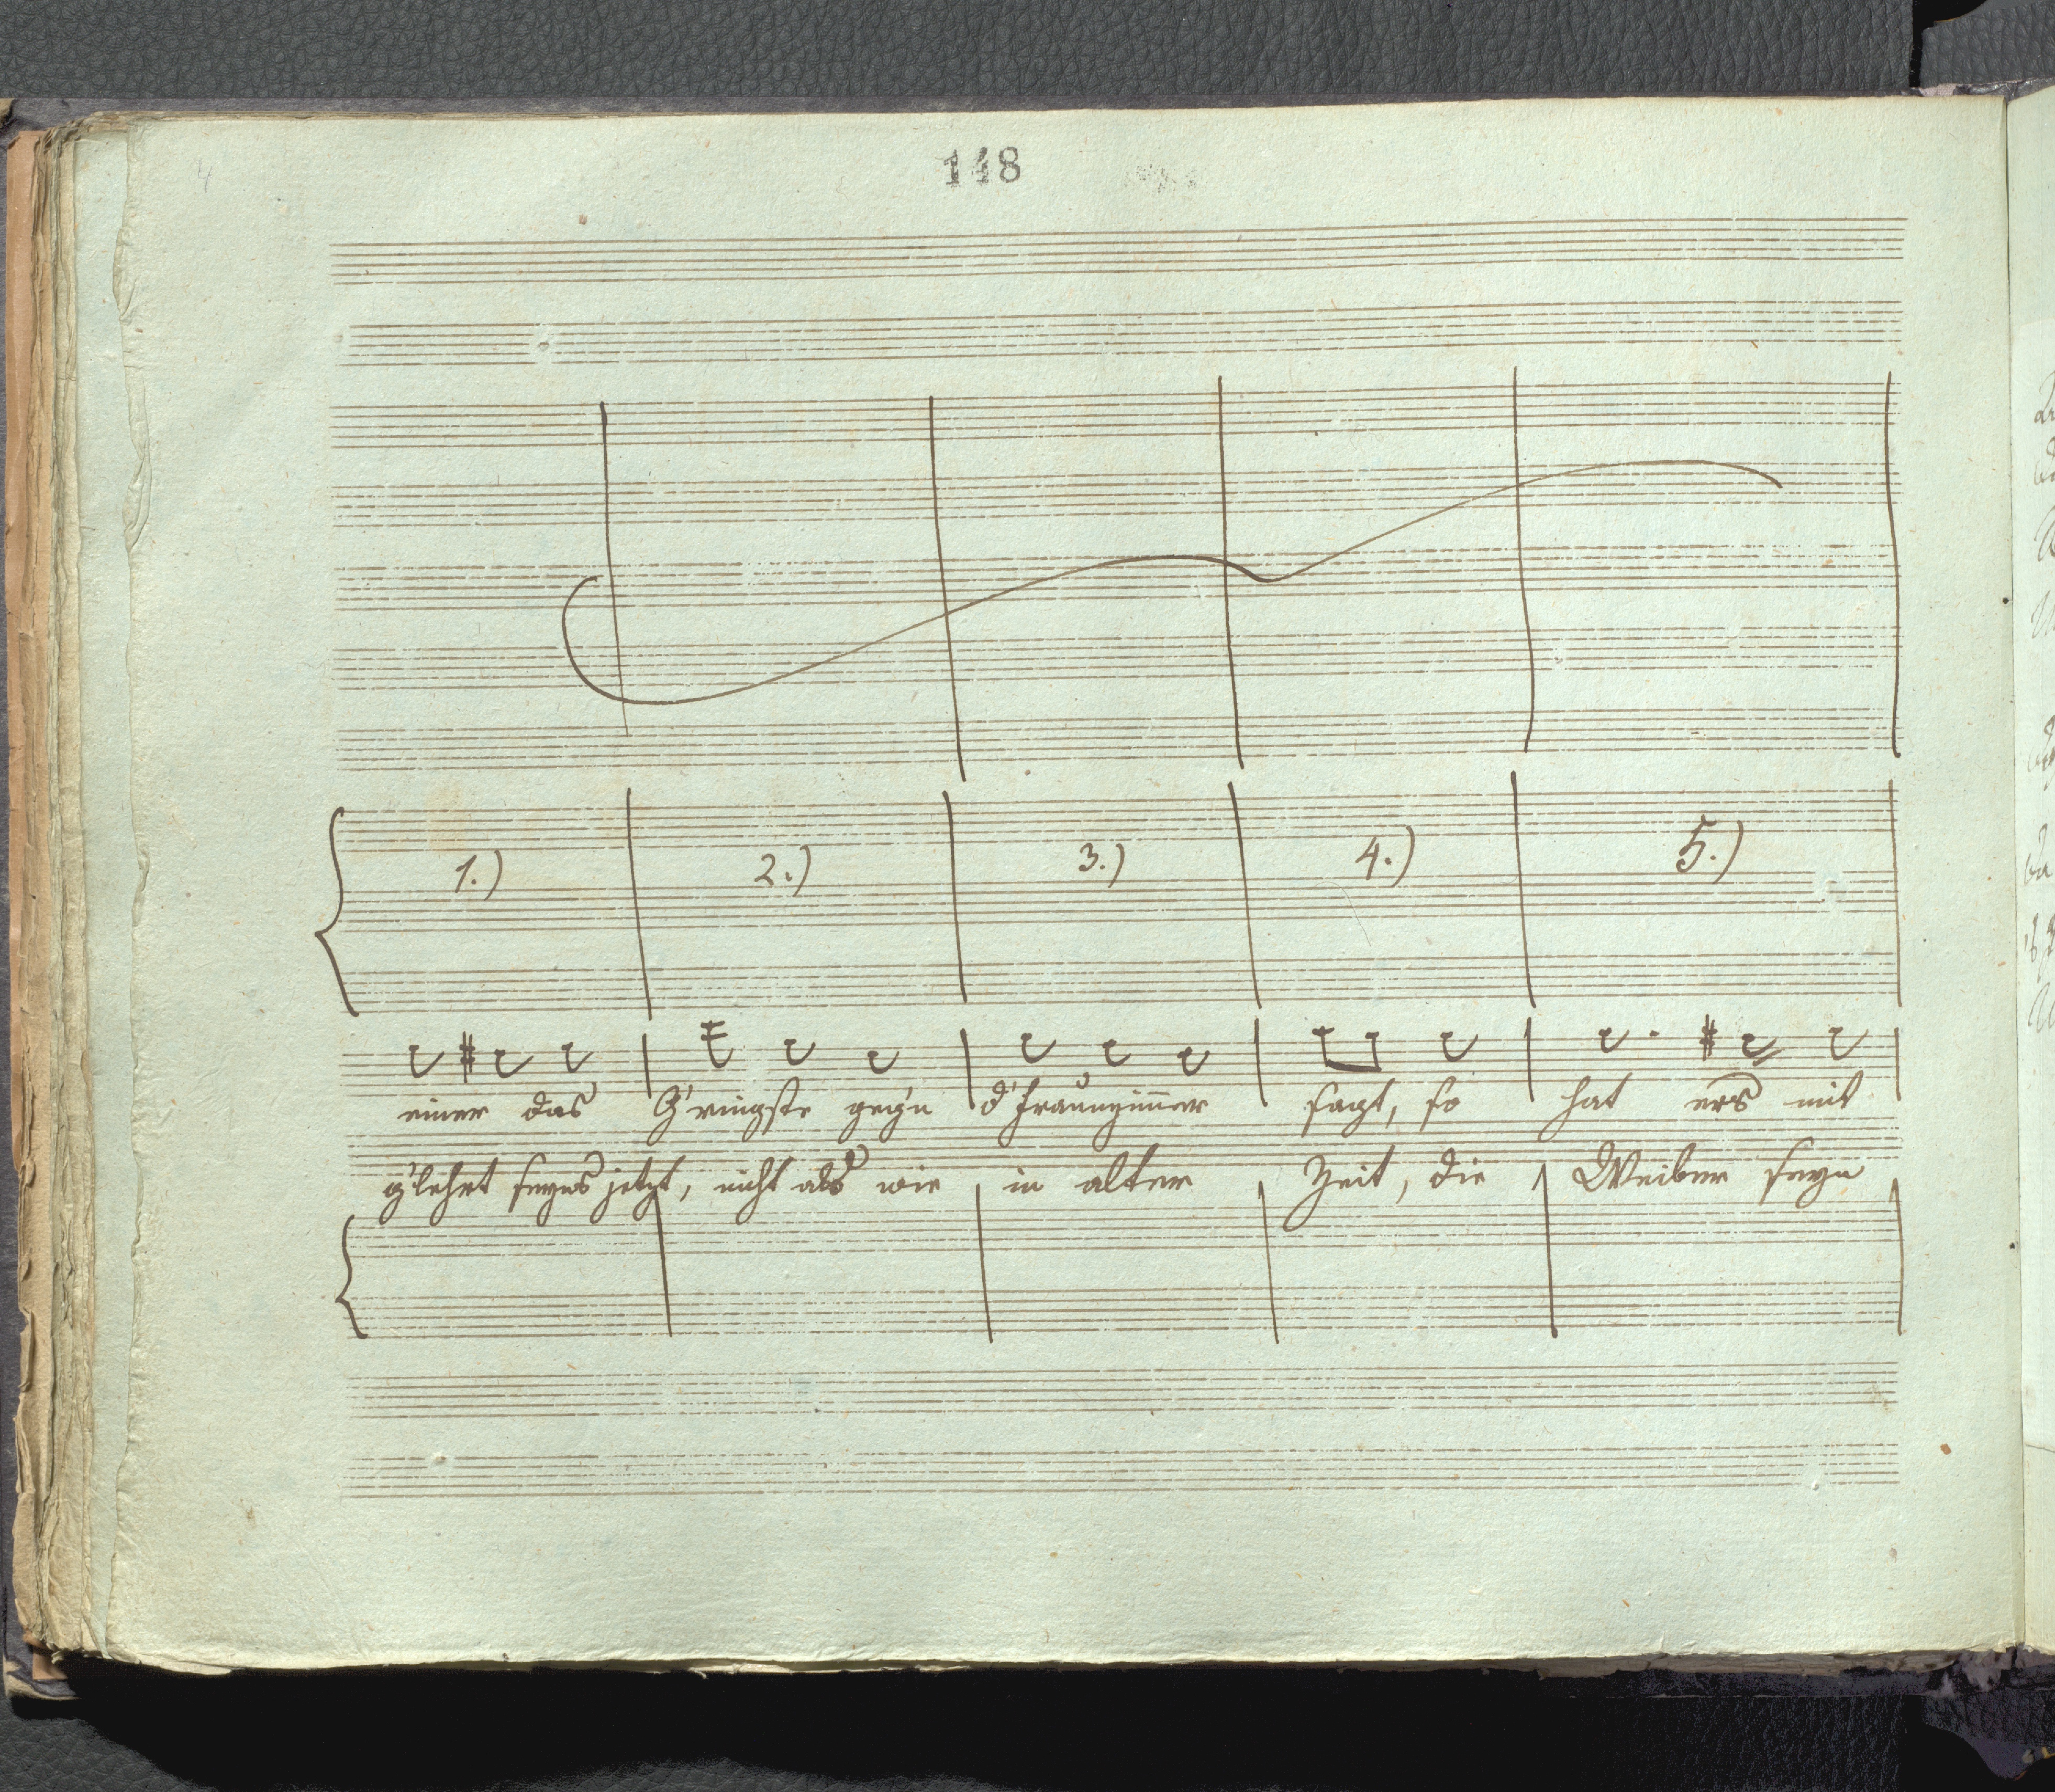 148
1.) 2.) 3.) 4.) 5.)
einer das G'ringste geg'n d'Frauenzimmer sagt, so hat ers mit
g'lehrt seyns jetzt, nicht als wie in alter Zeit, die Weiber seyn